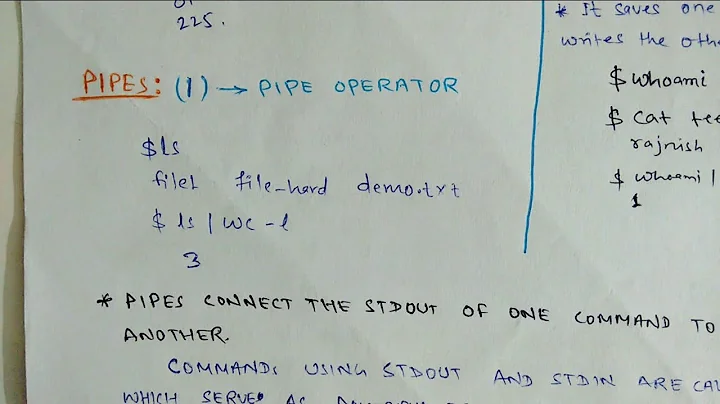 225.
PIPES: (|) → PIPE OPERATOR
$ls
file1 file_hard demo.txt
$ ls | wc -l
3
* PIPES CONNECT THE STDOUT OF ONE COMMAND TO
ANOTHER.
COMMANDS USING STDOUT AND STDIN ARE CAL
WHICH SERVES AS
* It saves one
writes the othe
$ whoami
$ cat tee
rajnish
$ whoami |
1